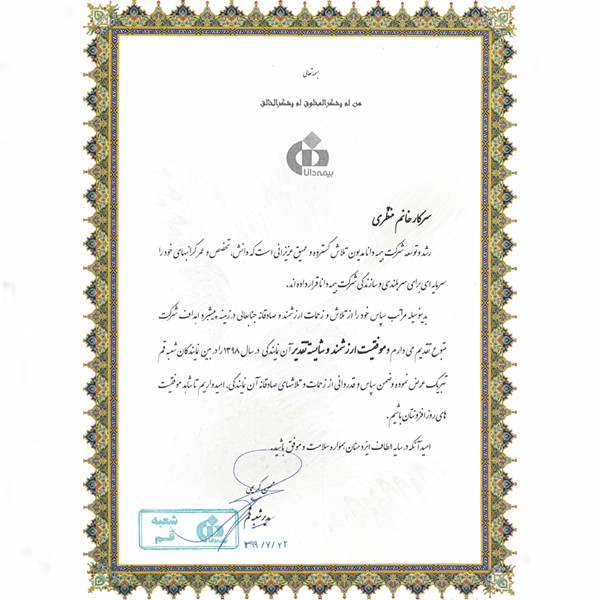 بسمه تعالی
من لم یشکر المخلوق لم یشکر الخالق
بیمه دانا
سرکار خانم منظری
رشد و توسعه شرکت بیمه دانا مدیون تلاش گسترده و عمیق عزیزانی است که دانش، تخصص و عمر گرانبهای خود را
سرمایه ای برای سربلندی و سازندگی شرکت بیمه دانا قرار داده اند.
بدینوسیله مراتب سپاس خود را از تلاش و زحمات ارزشمند و صادقانه جنابعالی در زمینه پیشبرد اهداف شرکت
متبوع تقدیم می دارم و موفقیت ارزشمند و شایسته تقدیر آن نمایندگی در سال ۱۳۹۸ را در بین نمایندگان شعبه قم
تبریک عرض نموده و ضمن سپاس و قدردانی از زحمات و تلاشهای صادقانه آن نمایندگی، امیدواریم تا شاهد موفقیت
های روز افزونتان باشیم.
امید آنکه در سایه الطاف ایزد منان همواره سلامت و موفق باشید.
مدیر شعبه قم
۳۹۹/۷/۲۲
شعبه
قم
بیمه دانا